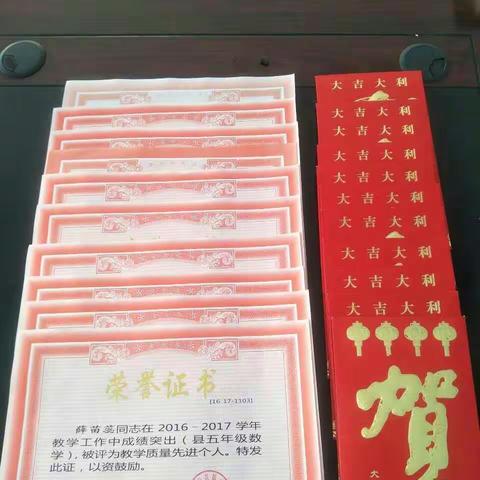 荣誉证书
[16 17-1103]
薛苗蕊同志在 2016-2017 学年
教学工作中成绩突出（县五年级数
学），被评为教学质量先进个人。特发
此证，以资鼓励。
大吉大利
大吉大利
大吉大利
大吉大利
大吉大利
大吉大利
大吉大利
大吉大利
大吉大利
大吉大利
贺
大